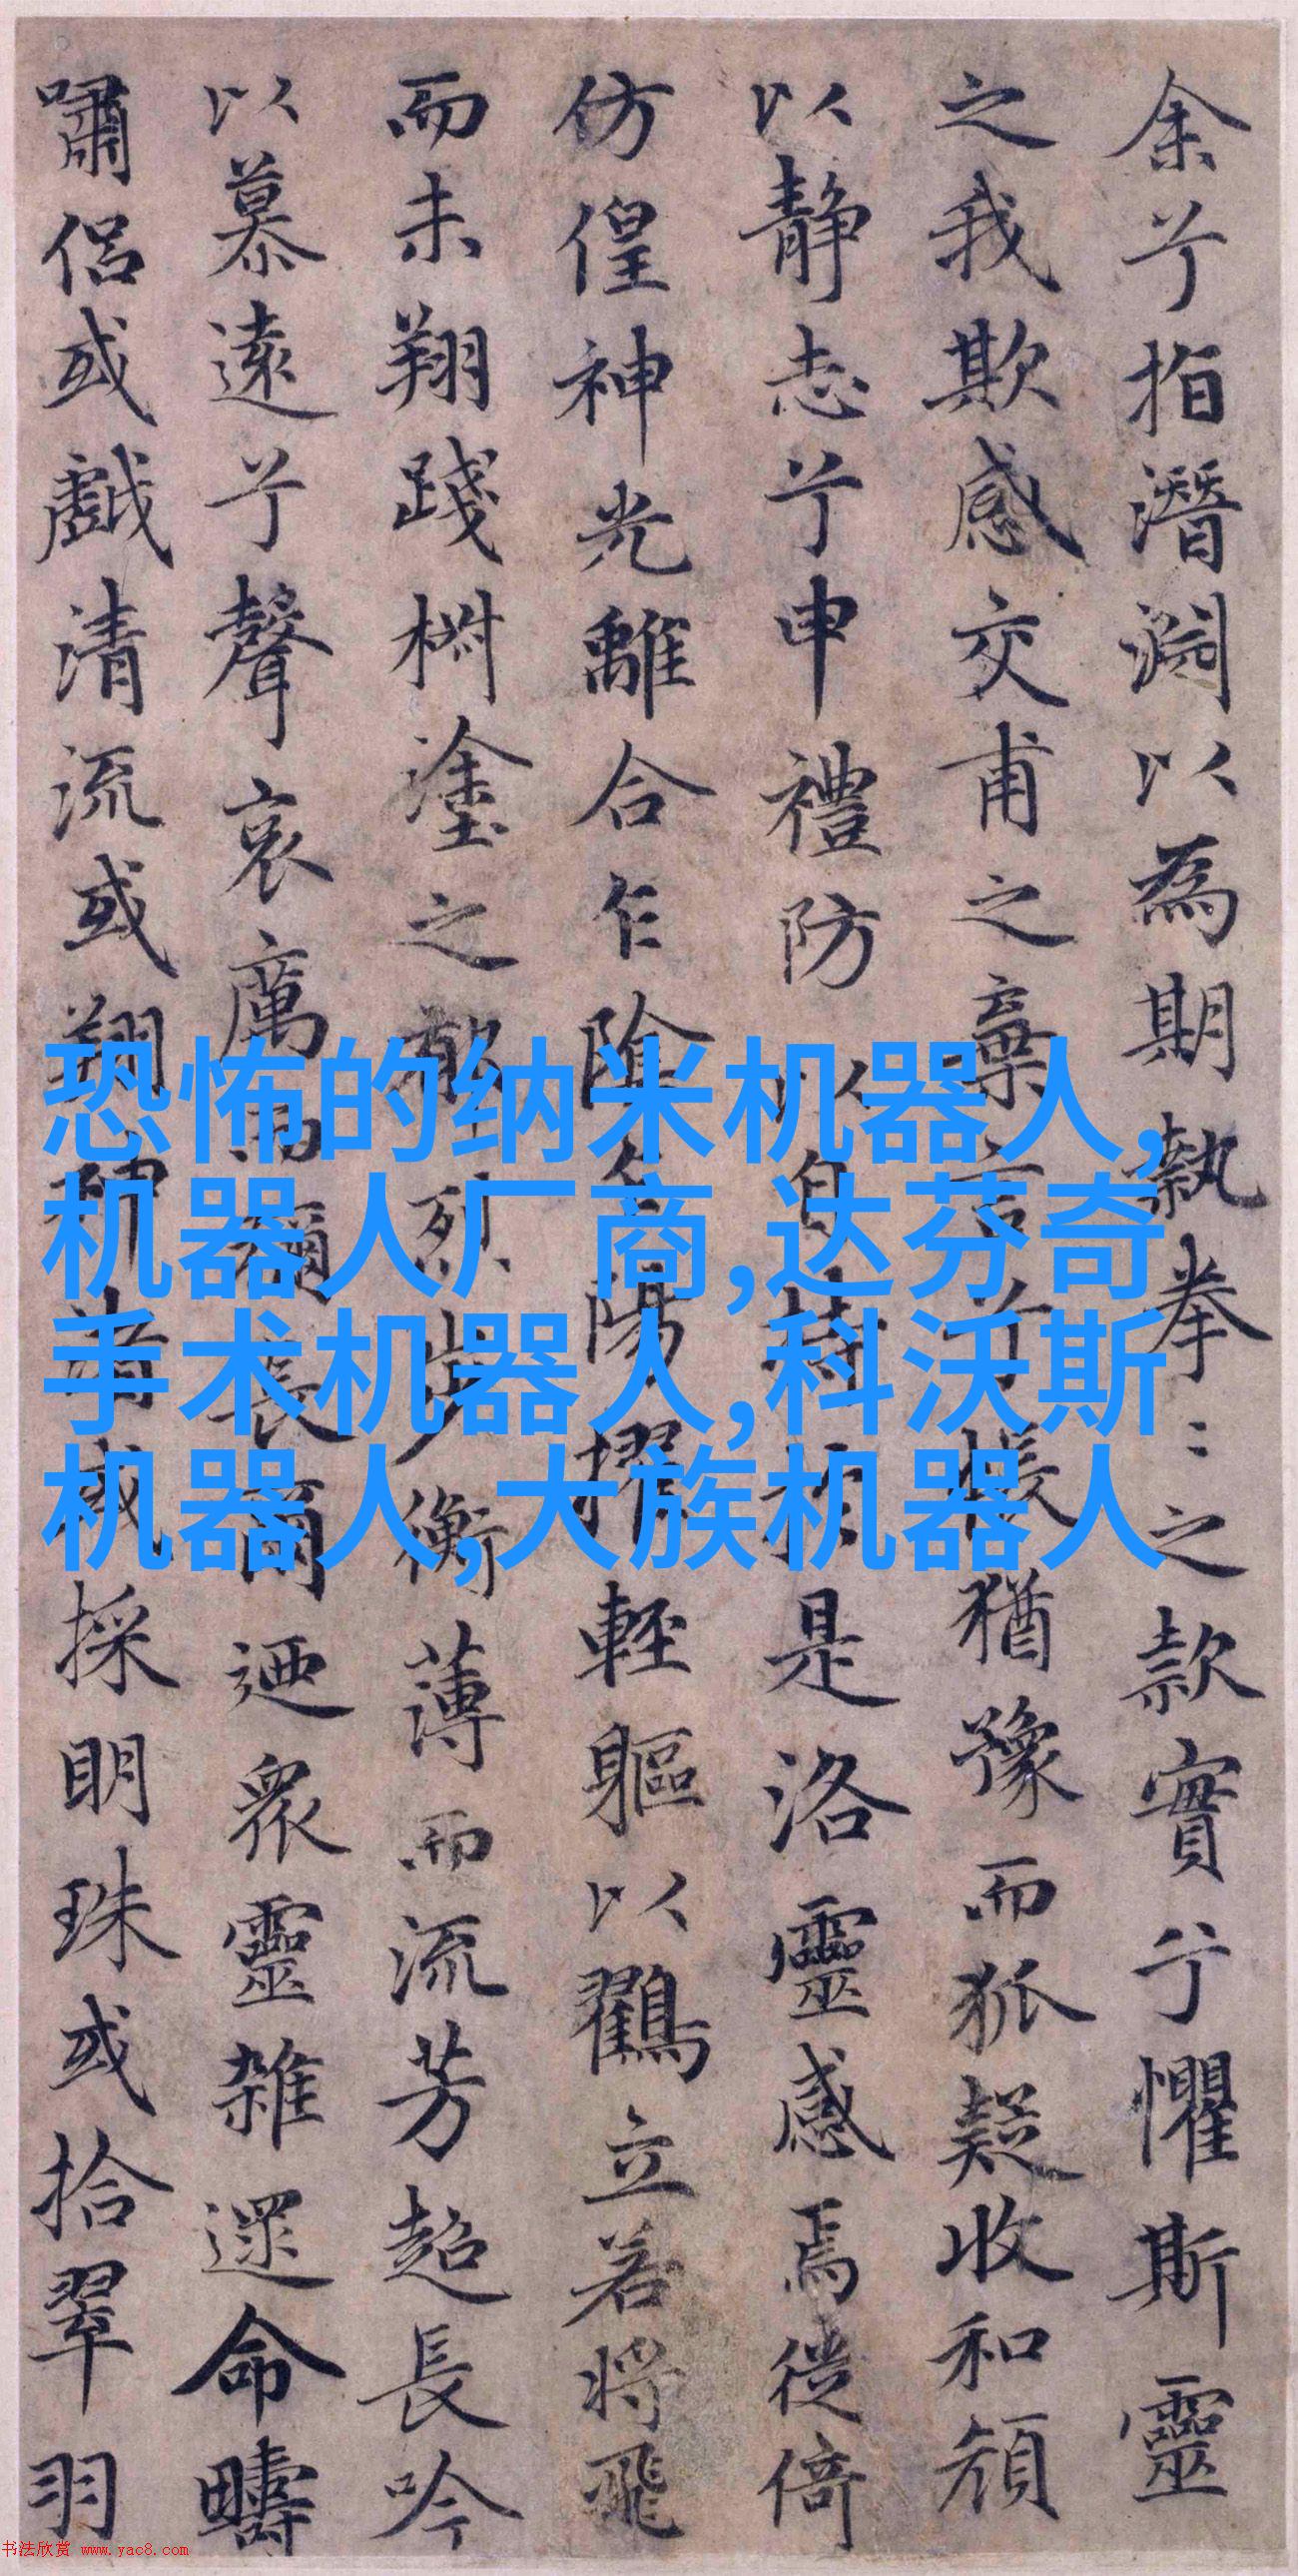 余兮指潛淵以為期執拳〻之款實兮懼斯靈
之我欺感交甫之棄言兮悵猶豫而狐疑收和顏
以静志兮申禮防以自持於是洛靈感焉徙倚
仿偟神光離合乍陰乍陽擢輕軀以鶴立若將飛
而未翔踐椒塗之郁烈步衡薄而流芳超長吟
以慕遠兮聲哀厲而彌長爾迺衆靈雜遝命疇
嘯侶或戲清流或翔神渚或採明珠或拾翠羽
恐怖的纳米机器人,
机器人厂商,达芬奇
手术机器人,科沃斯
机器人,大族机器人
书法欣赏 www.yac8.com